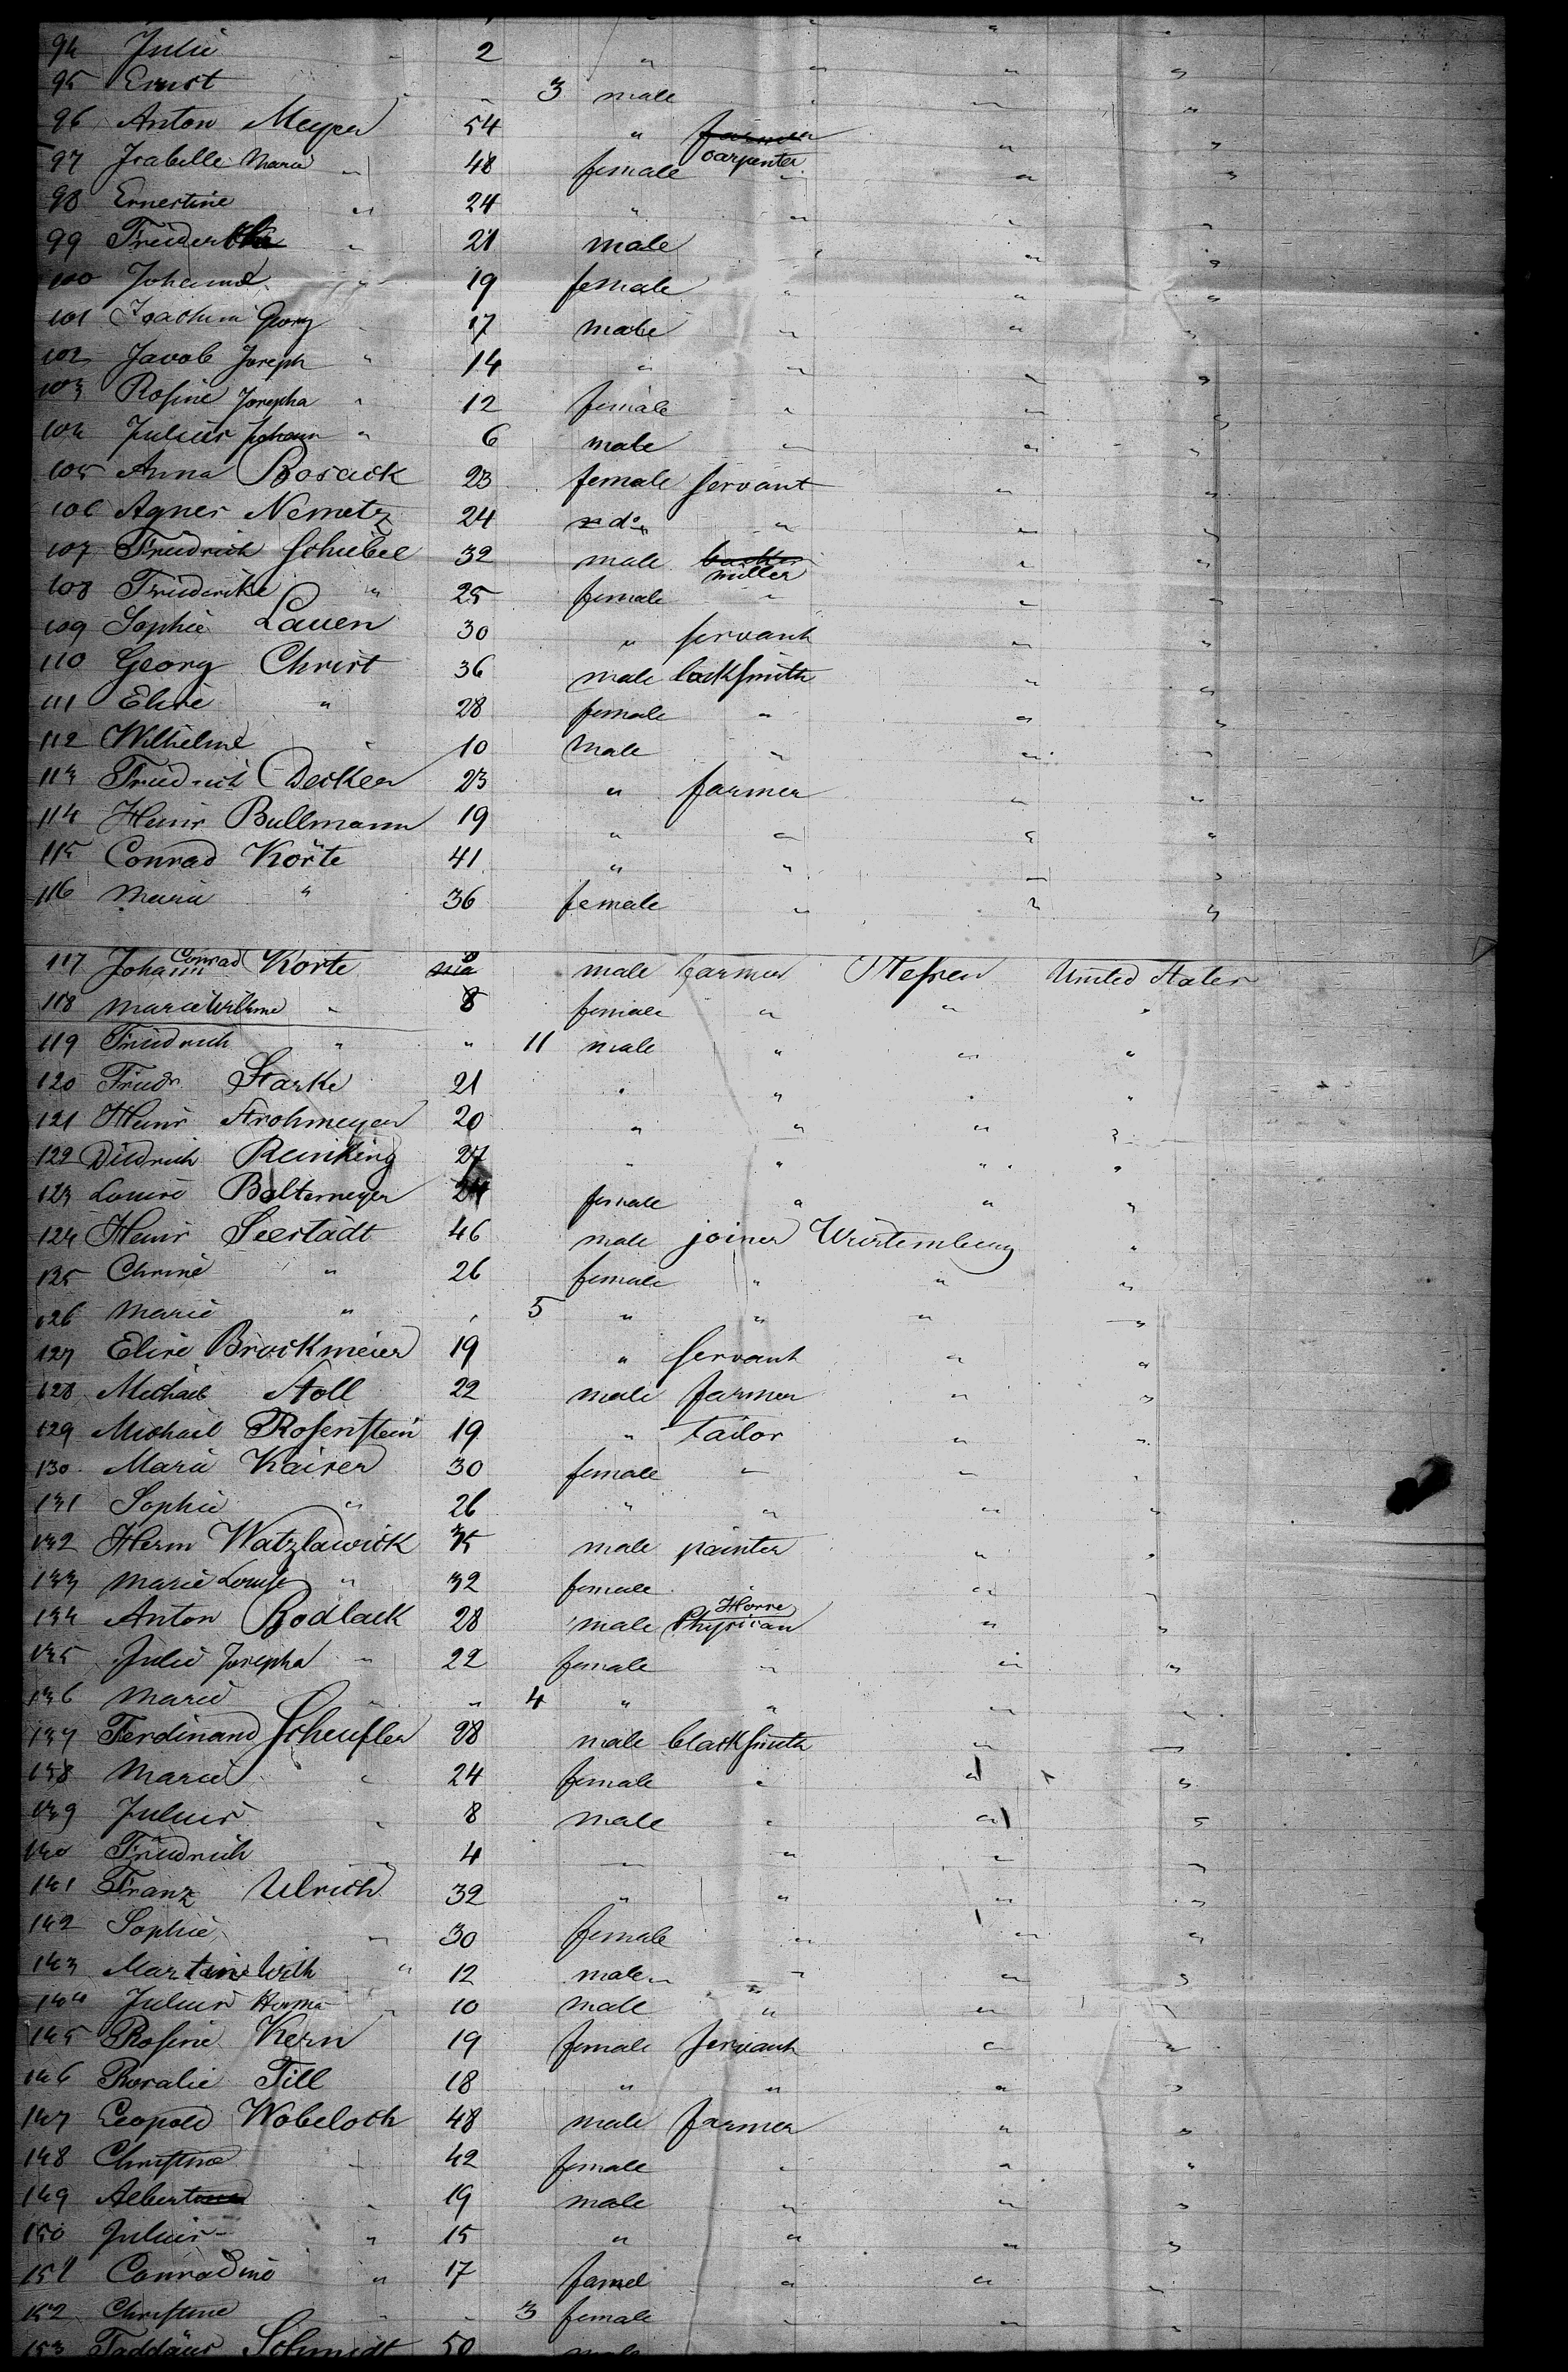 94 Julie 2 " " " "
95 Ernst " " 3 male " " "
96 Anton Meyer 54 " farmer carpenter " "
97 Isabelle Maria " 48 female " " "
98 Ernestine " 24 " " " "
99 Friederika " 21 male " " "
100 Johanne " 19 female " " "
101 Joachim Georg " 17 male " " "
102 Jacob Joseph " 14 " " " "
103 Rosine Josepha " 12 female " " "
104 Julius Johann " 6 male " " "
105 Anna Bosack 23 female servant " "
106 Agnes Nemetz 24 do " " "
107 Friedrich Schiebel 32 male miller " "
108 Friederike " 25 female " " "
109 Sophie Lauen 30 " servant " "
110 Georg Christ 36 male locksmith " "
111 Elise " 28 female " " "
112 Wilhelme " 10 male " " "
113 Friedrich Decker 23 " farmer " "
114 Heinr Bullmann 19 " " " "
115 Conrad Körte 41 " " " "
116 Maria " 36 female " " "
117 Johann Conrad Korte 8 male farmer Hessen United States
118 Marie Wilhme " 8 female " " "
119 Friedrich " " 11 male " " "
120 Friedr Starke 21 " " " "
121 Heinr Strohmeyer 20 " " " "
122 Diedrich Reinking 27 " " " "
123 Louise Boltemeyer 24 female " " "
124 Heinr Seestädt 46 male joiner Würtemberg "
125 Chrine " 26 female " " "
126 Marie " " 5 " " " "
127 Elise Brockmeier 19 " servant " "
128 Michael Stoll 22 male farmer " "
129 Michael Rosenstein 19 " tailor " "
130 Maria Kaiser 30 female " " "
131 Sophie " 26 " " " "
132 Herm Watzlawick 35 male painter " "
133 Marie Louise " 32 female " " "
134 Anton Rodlack 28 male Horse Physican " "
135 Julie Josepha " 22 female " " "
136 Marie " " 4 " " " "
137 Ferdinand Scheufler 28 male blacksmith " "
138 Marie " 24 female " " "
139 Julius " 8 male " " "
140 Friedrich " 4 " " " "
141 Franz Ulrich 32 " " " "
142 Sophie " 30 female " " "
143 Martin Wilh " 12 male " " "
144 Julius Herma " 10 male " " "
145 Rosine Kern 19 female servant " "
146 Rosalie Till 18 " " " "
147 Leopold Wobeloch 48 male farmer " "
148 Christine " 42 female " " "
149 Albert " 19 male " " "
150 Julius " 15 " " " "
151 Conradine " 17 famel " " "
152 Christine " " 3 female " " "
153 Taddäus Schmidt 50 male